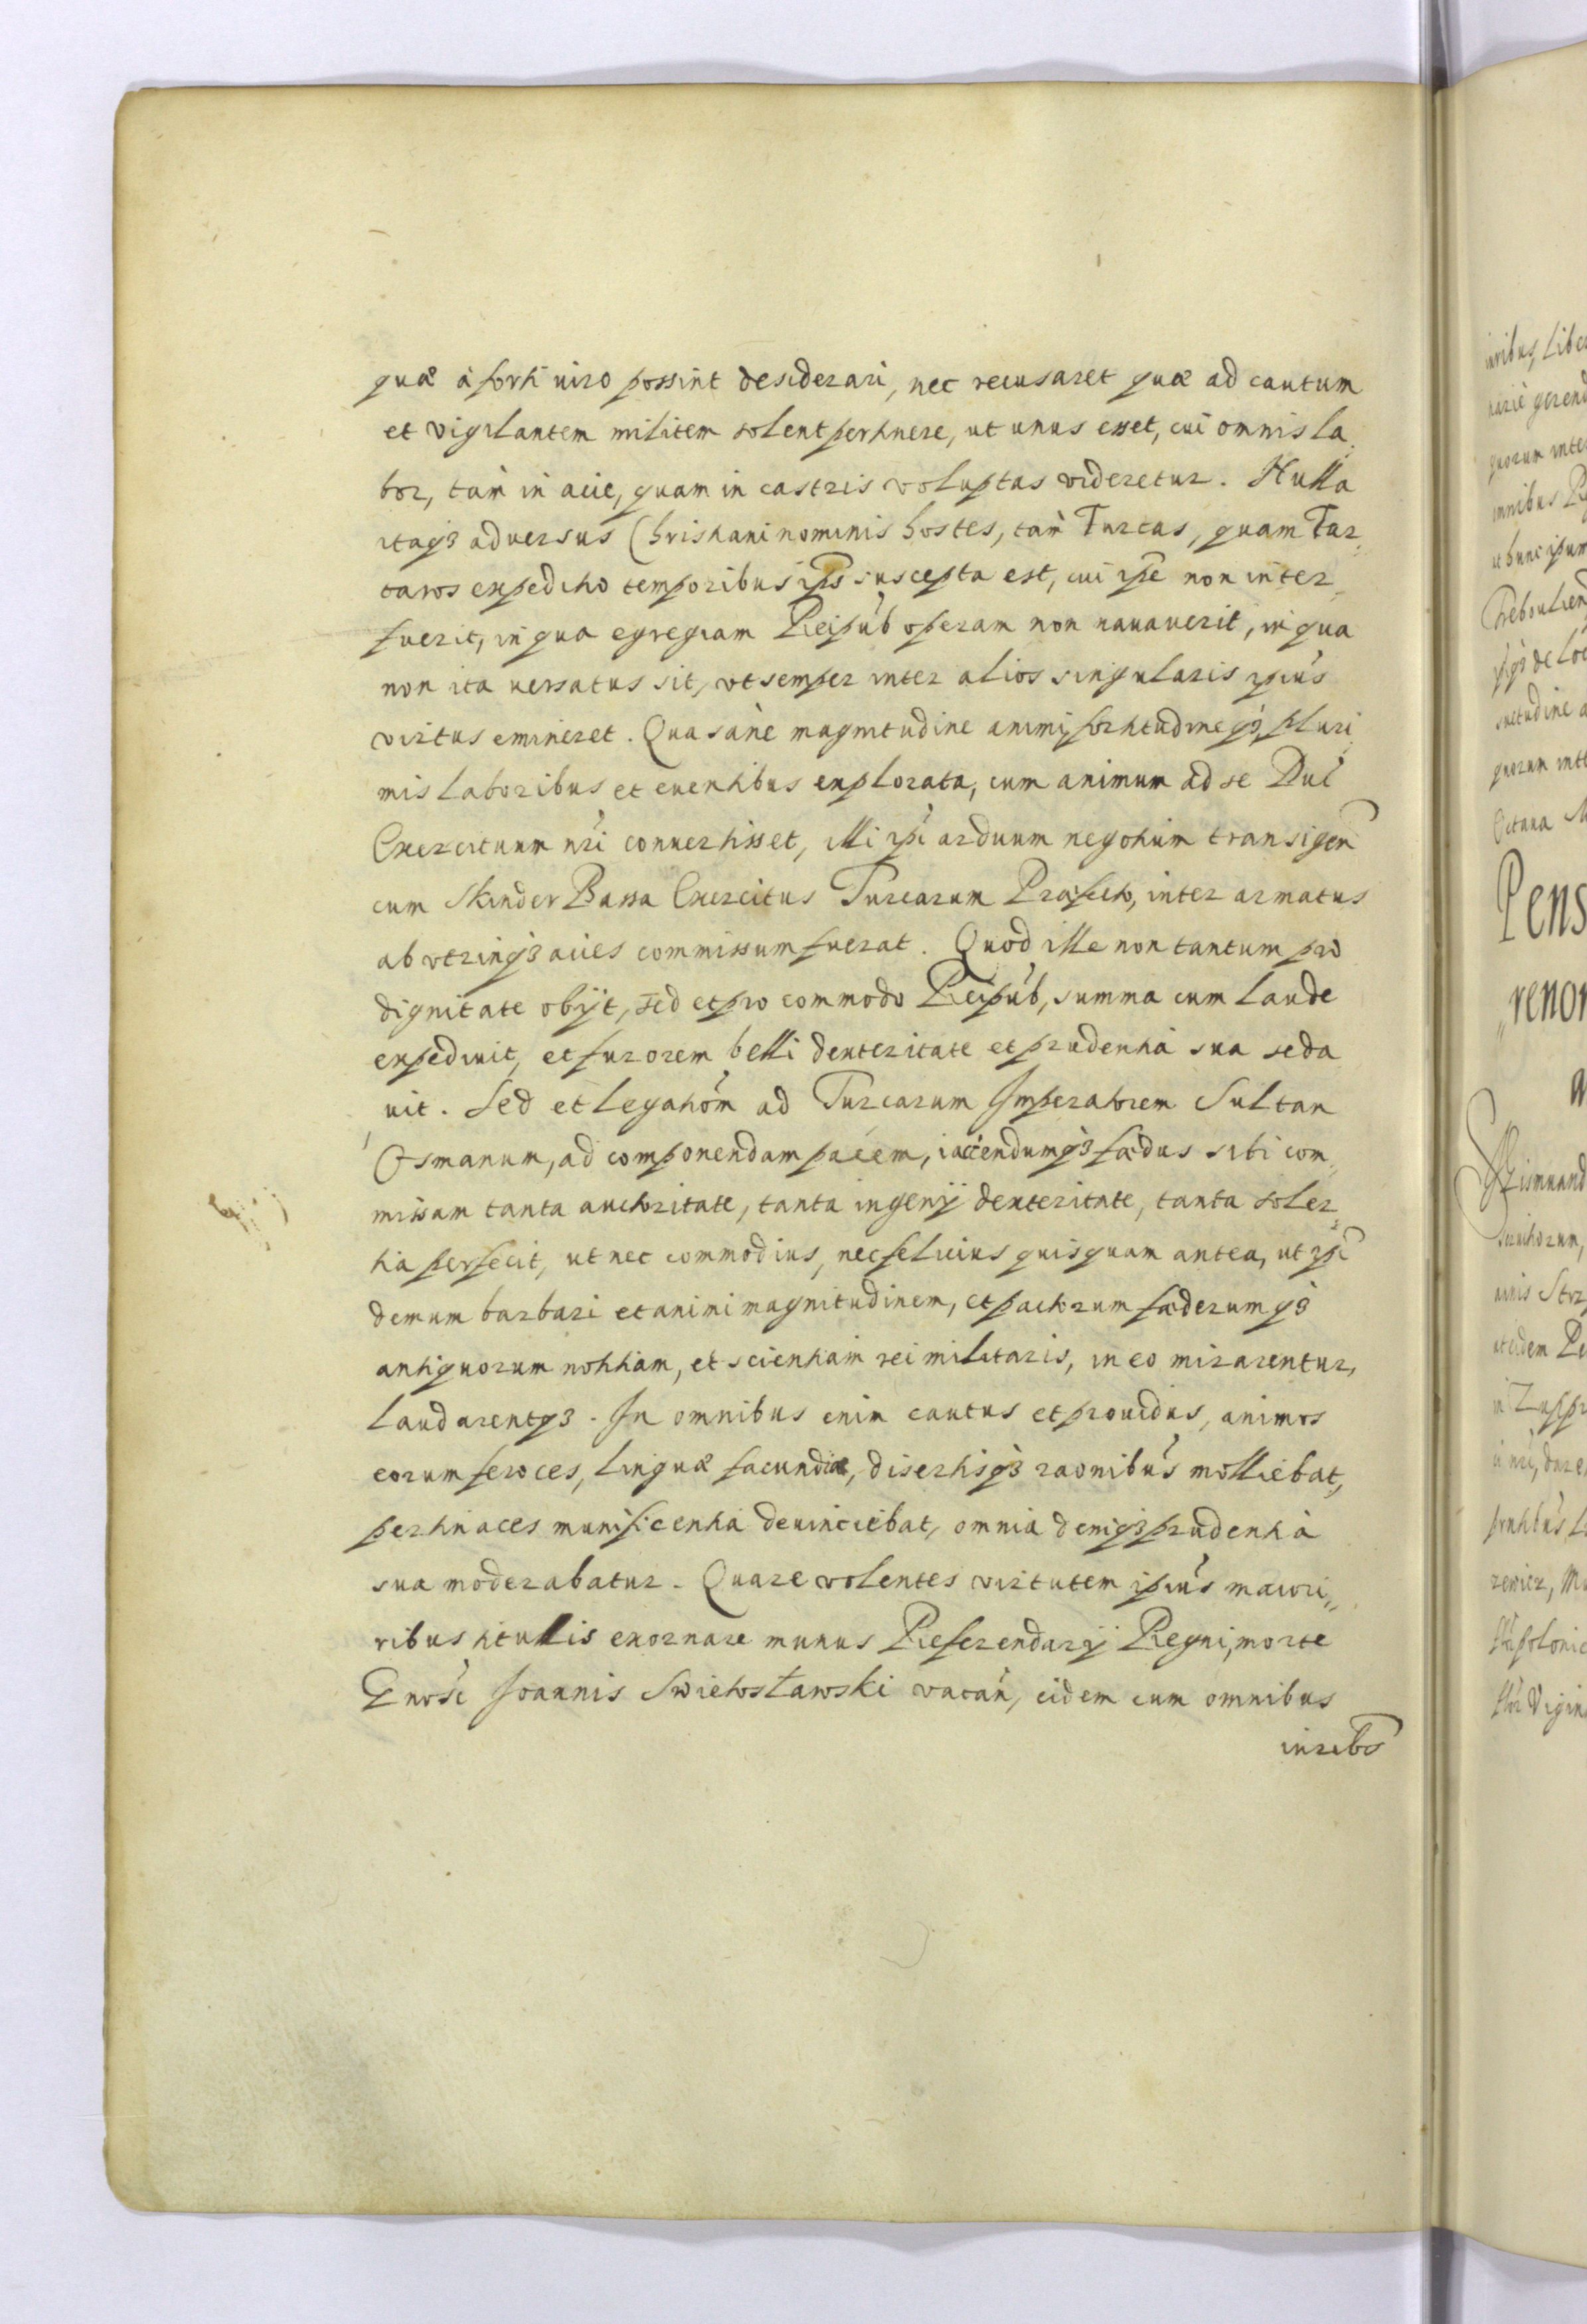 quæ à forti uiro possint desiderari, nec recusaret quæ ad cautum
et vigilantem militem solent pertinere, ut unus esset, cui omnis la,
bor, tam in acie, quam in castris voluptas videretur. Nulla
itaq3 aduersus Christiani nominis hostes, tam Turcas, quam Tar,
taros expeditio temporibus ipis suscepta est, cui ipe non inter,
fuerit, in qua egregiam Reipub operam non nauauerit, in qua
non ita uersatus sit, vt semper inter alios singularis ipius
virtus emineret. Qua sane magnitudine animi, fortitudineq3, pluri,
mis laboribus et euentibus explorata, cum animum ad se Duc
Exercituum nri conuertisset, illi ipi arduum negotium transigen
cum Skinder Bassa Exercitus Turcarum Præfecto, inter armatus
ab vtrinq3 acies commissum fuerat. Quod ille non tantum pro
dignitate obijt, sed et pro commodo Reipub, summa cum laude
expediuit, et furorem belli dexteritate et prudentia sua seda
uit. Sed et legatiom ad Turcarum Imperatorem Sultan
Osmanum, ad componendam pacem, iaciendumq3 fædus sibi com,
missam tanta authoritate, tanta ingenij dexteritate, tanta soler,
tia perfecit, ut nec commodius, nec felicius quisquam antea, ut ipi
demum barbari et animi magnitudinem, et pactorum fæderumq3
antiquorum notitiam, et scientiam rei militaris, in eo mirarentur,
laudarentq3. In omnibus enim cautus et prouidus, animos
eorum feroces, linguæ facundia, disertisq3 raonibus molliebat,
pertinaces munificentia deuinciebat, omnia deniq3 prudentia
sua moderabatur. Quare volentes virtutem ipius maiori,,
ribus titullis exornare munus Referendarij Regni, morte
Gnosi Joannis Swietosławski vacan, eidem cum omnibus
iuribs